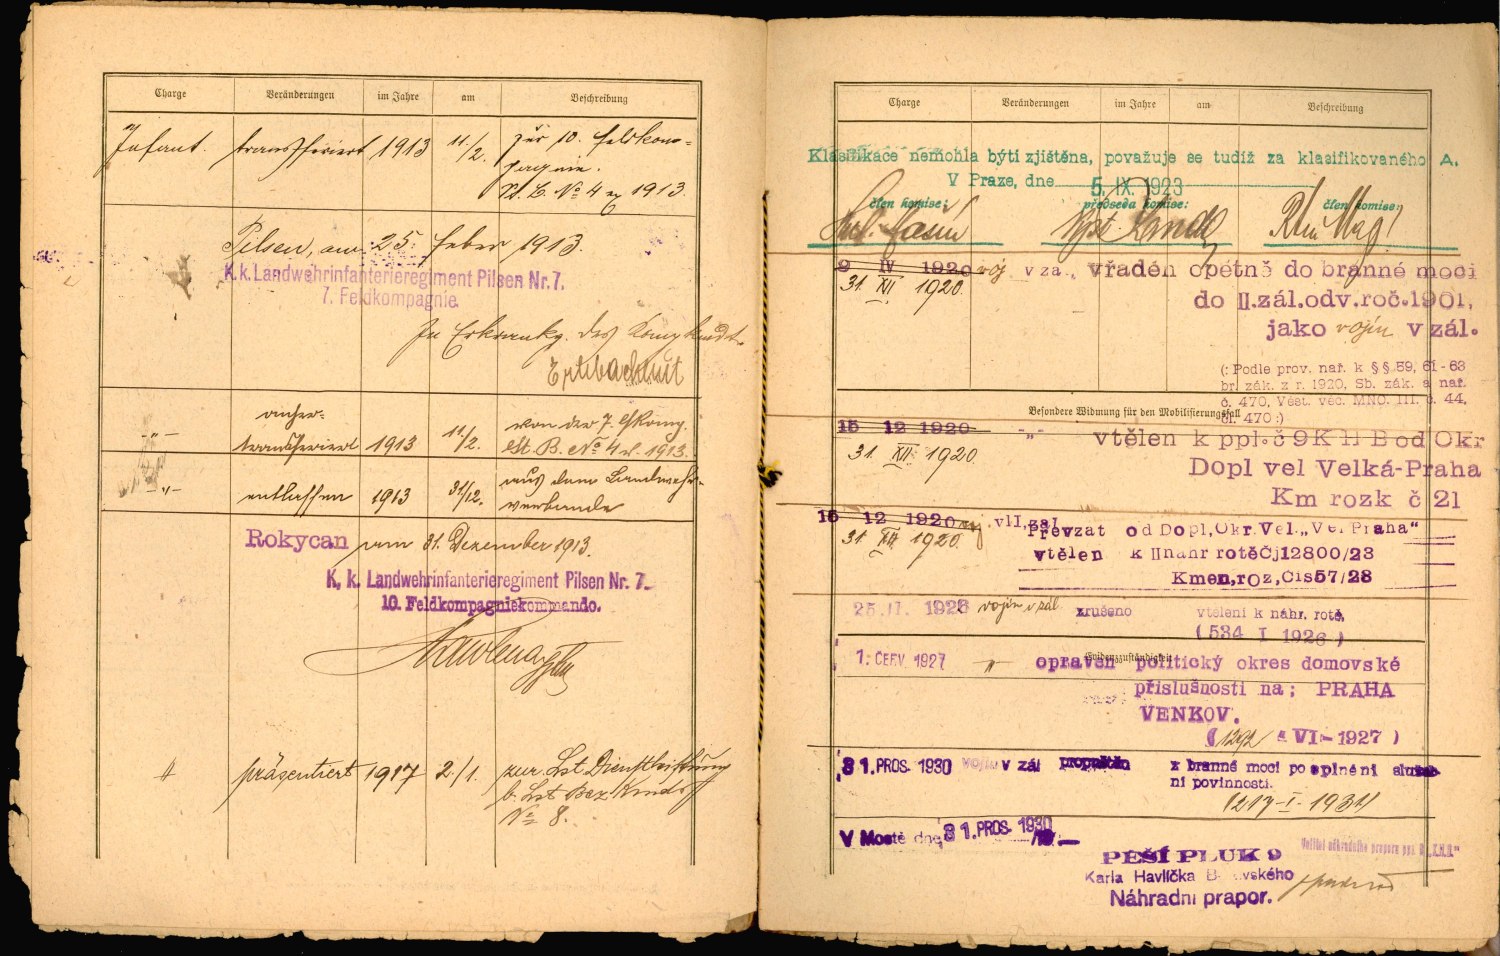 Charge Veränderungen im Jahre am Beschreibung
Infant. transferiert 1913 11/2. zur 10. Feldkom-
pagnie.
No 4 1913.
Pilsen, am 25. feber 1913.
K.k. Landwehrinfanterieregiment Pilsen Nr. 7.
7. Feldkompagnie.
In Erkrankg. des Kompkmdt.
anher-
-"- transferiert 1913 11/2. von der 7. Komp.
No 4 1913.
-"- entlassen 1913 31/12. aus dem Landwehr-
verbande
Rokycan am 31. Dezember 1913.
K. k. Landwehrinfanterieregiment Pilsen Nr. 7.
10. Feldkompagniekommando.
" präsentiert 1917 2./1. zur Lst Dienstleistung
b. Lst Bez Kmdo
No 8.
Charge Veränderungen im Jahre am Beschreibung
Klasifikace nemohla býti zjištěna, považuje se tudíž za klasifikovaného A.
V Praze, dne 5. IX. 1923
člen komise: předseda komise: člen komise:
9 IV 1920 voj. v zá., vřaděn opětně do branné moci
31. XII 1920. do II.zál.odv.roč.1901,
jako vojín v zál.
(: Podle prov. nař. k §§ 59, 61-63
br. zák. z r. 1920, Sb. zák. a nař.
č. 470, Věst. věc. MNO. III. č. 44,
čl. 470 :)
Besondere Widmung für den Mobilisierungsfall
15 12 1920 -"- vtělen k ppl.č 9 K H B od Okr
31. XII. 1920. Dopl vel Velká-Praha
Km rozk č 21
15 12 1920 voj. v II. zál Převzat od Dopl, Okr. Vel. „Vel Praha“
31. XII. 1920. vtělen k II náhr rotě Čj 12800/23
Kmen, roz, čís 57/23
25. II. 1926 vojín v zál. zrušeno vtělení k náhr. rotě.
(534 I 1926)
Evidenzzuständigkeit
1. ČERV. 1927 " opraven politický okres domovské
příslušnosti na; PRAHA
VENKOV.
(1292 VI-1927)
31. PROS. 1930 vojín v zál propuštěn z branné moci po splnění služeb
ní povinnosti.
(217-I-1931)
V Mostě dne 31. PROS. 1930
Velitel náhradního praporu pp. 9 „K.H.B.“
PĚŠÍ PLUK 9
Karla Havlíčka B vského
Náhradní prapor.